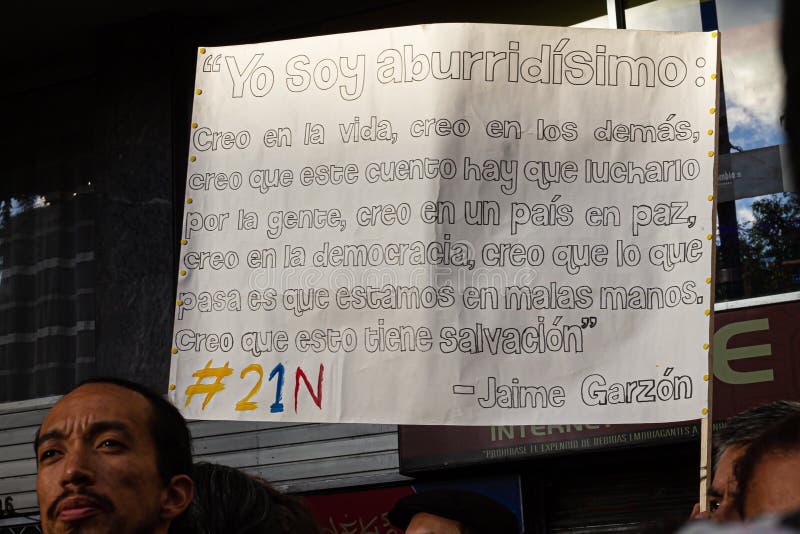 “Yo soy aburridísimo:
Creo en la vida, creo en los demás,
creo que este cuento hay que lucharlo
por la gente, creo en un país en paz,
creo en la democracia, creo que lo que
pasa es que estamos en malas manos.
Creo que esto tiene salvación”
#21N
-Jaime Garzón
E
INTERNE
"PROHIBASE EL EXPENDIO DE BEBIDAS EMBRIAGANTES A
dreamstime.com